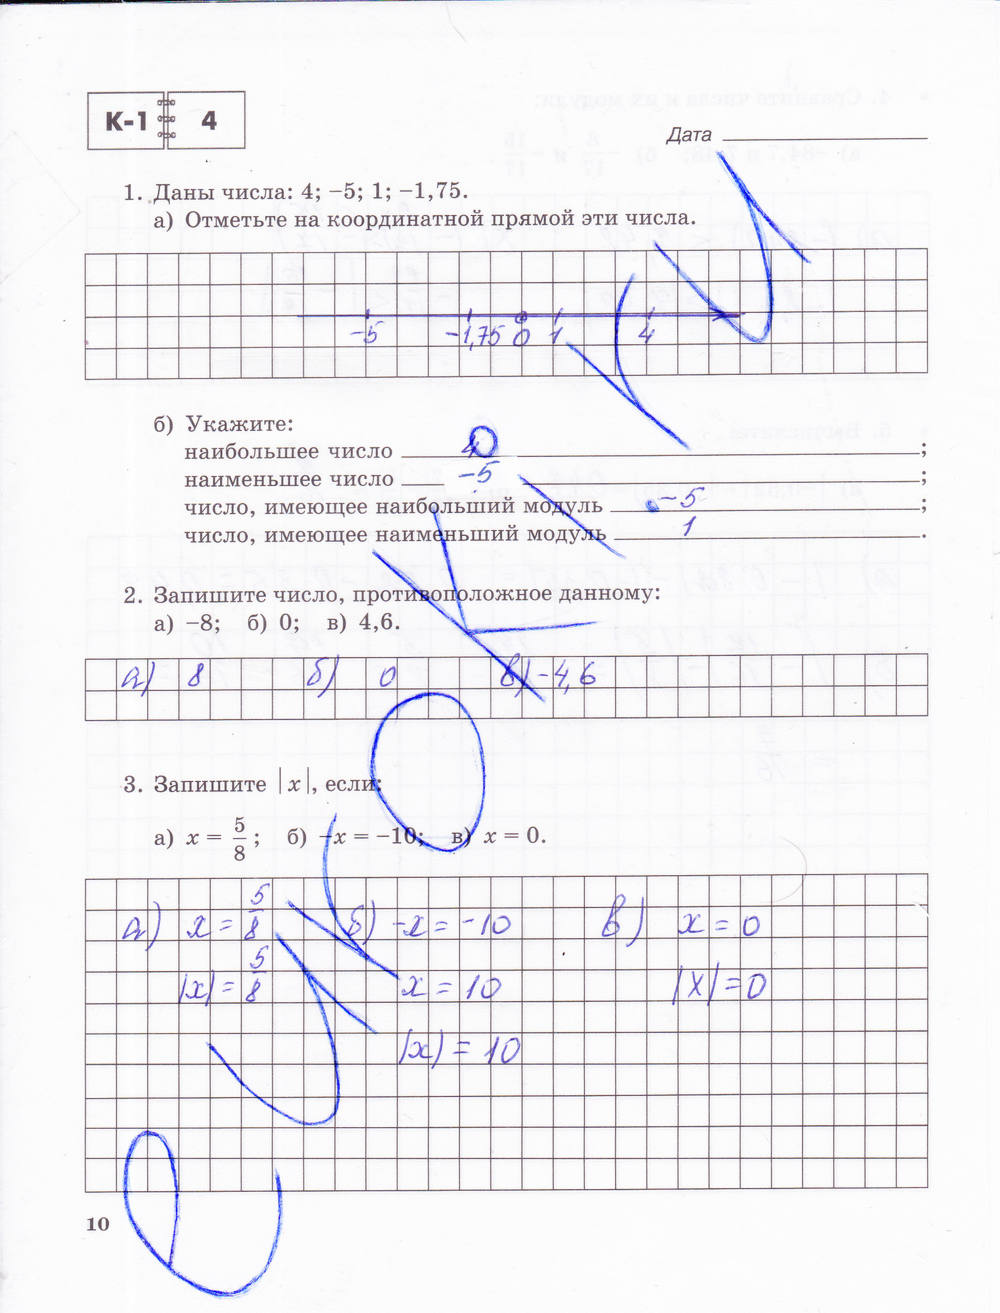 К-1 4
Дата
1. Даны числа: 4; −5; 1; −1,75.
а) Отметьте на координатной прямой эти числа.
−5 −1,75 0 1 4
б) Укажите:
наибольшее число 4 ;
наименьшее число −5 ;
число, имеющее наибольший модуль −5 ;
число, имеющее наименьший модуль 1 .
2. Запишите число, противоположное данному:
а) −8; б) 0; в) 4,6.
а) 8 б) 0 в) −4,6
3. Запишите |x|, если:
а) x = 5/8; б) −x = −10; в) x = 0.
а) x = 5/8 б) −x = −10 в) x = 0
|x| = 5/8 x = 10 |x| = 0
|x| = 10
10